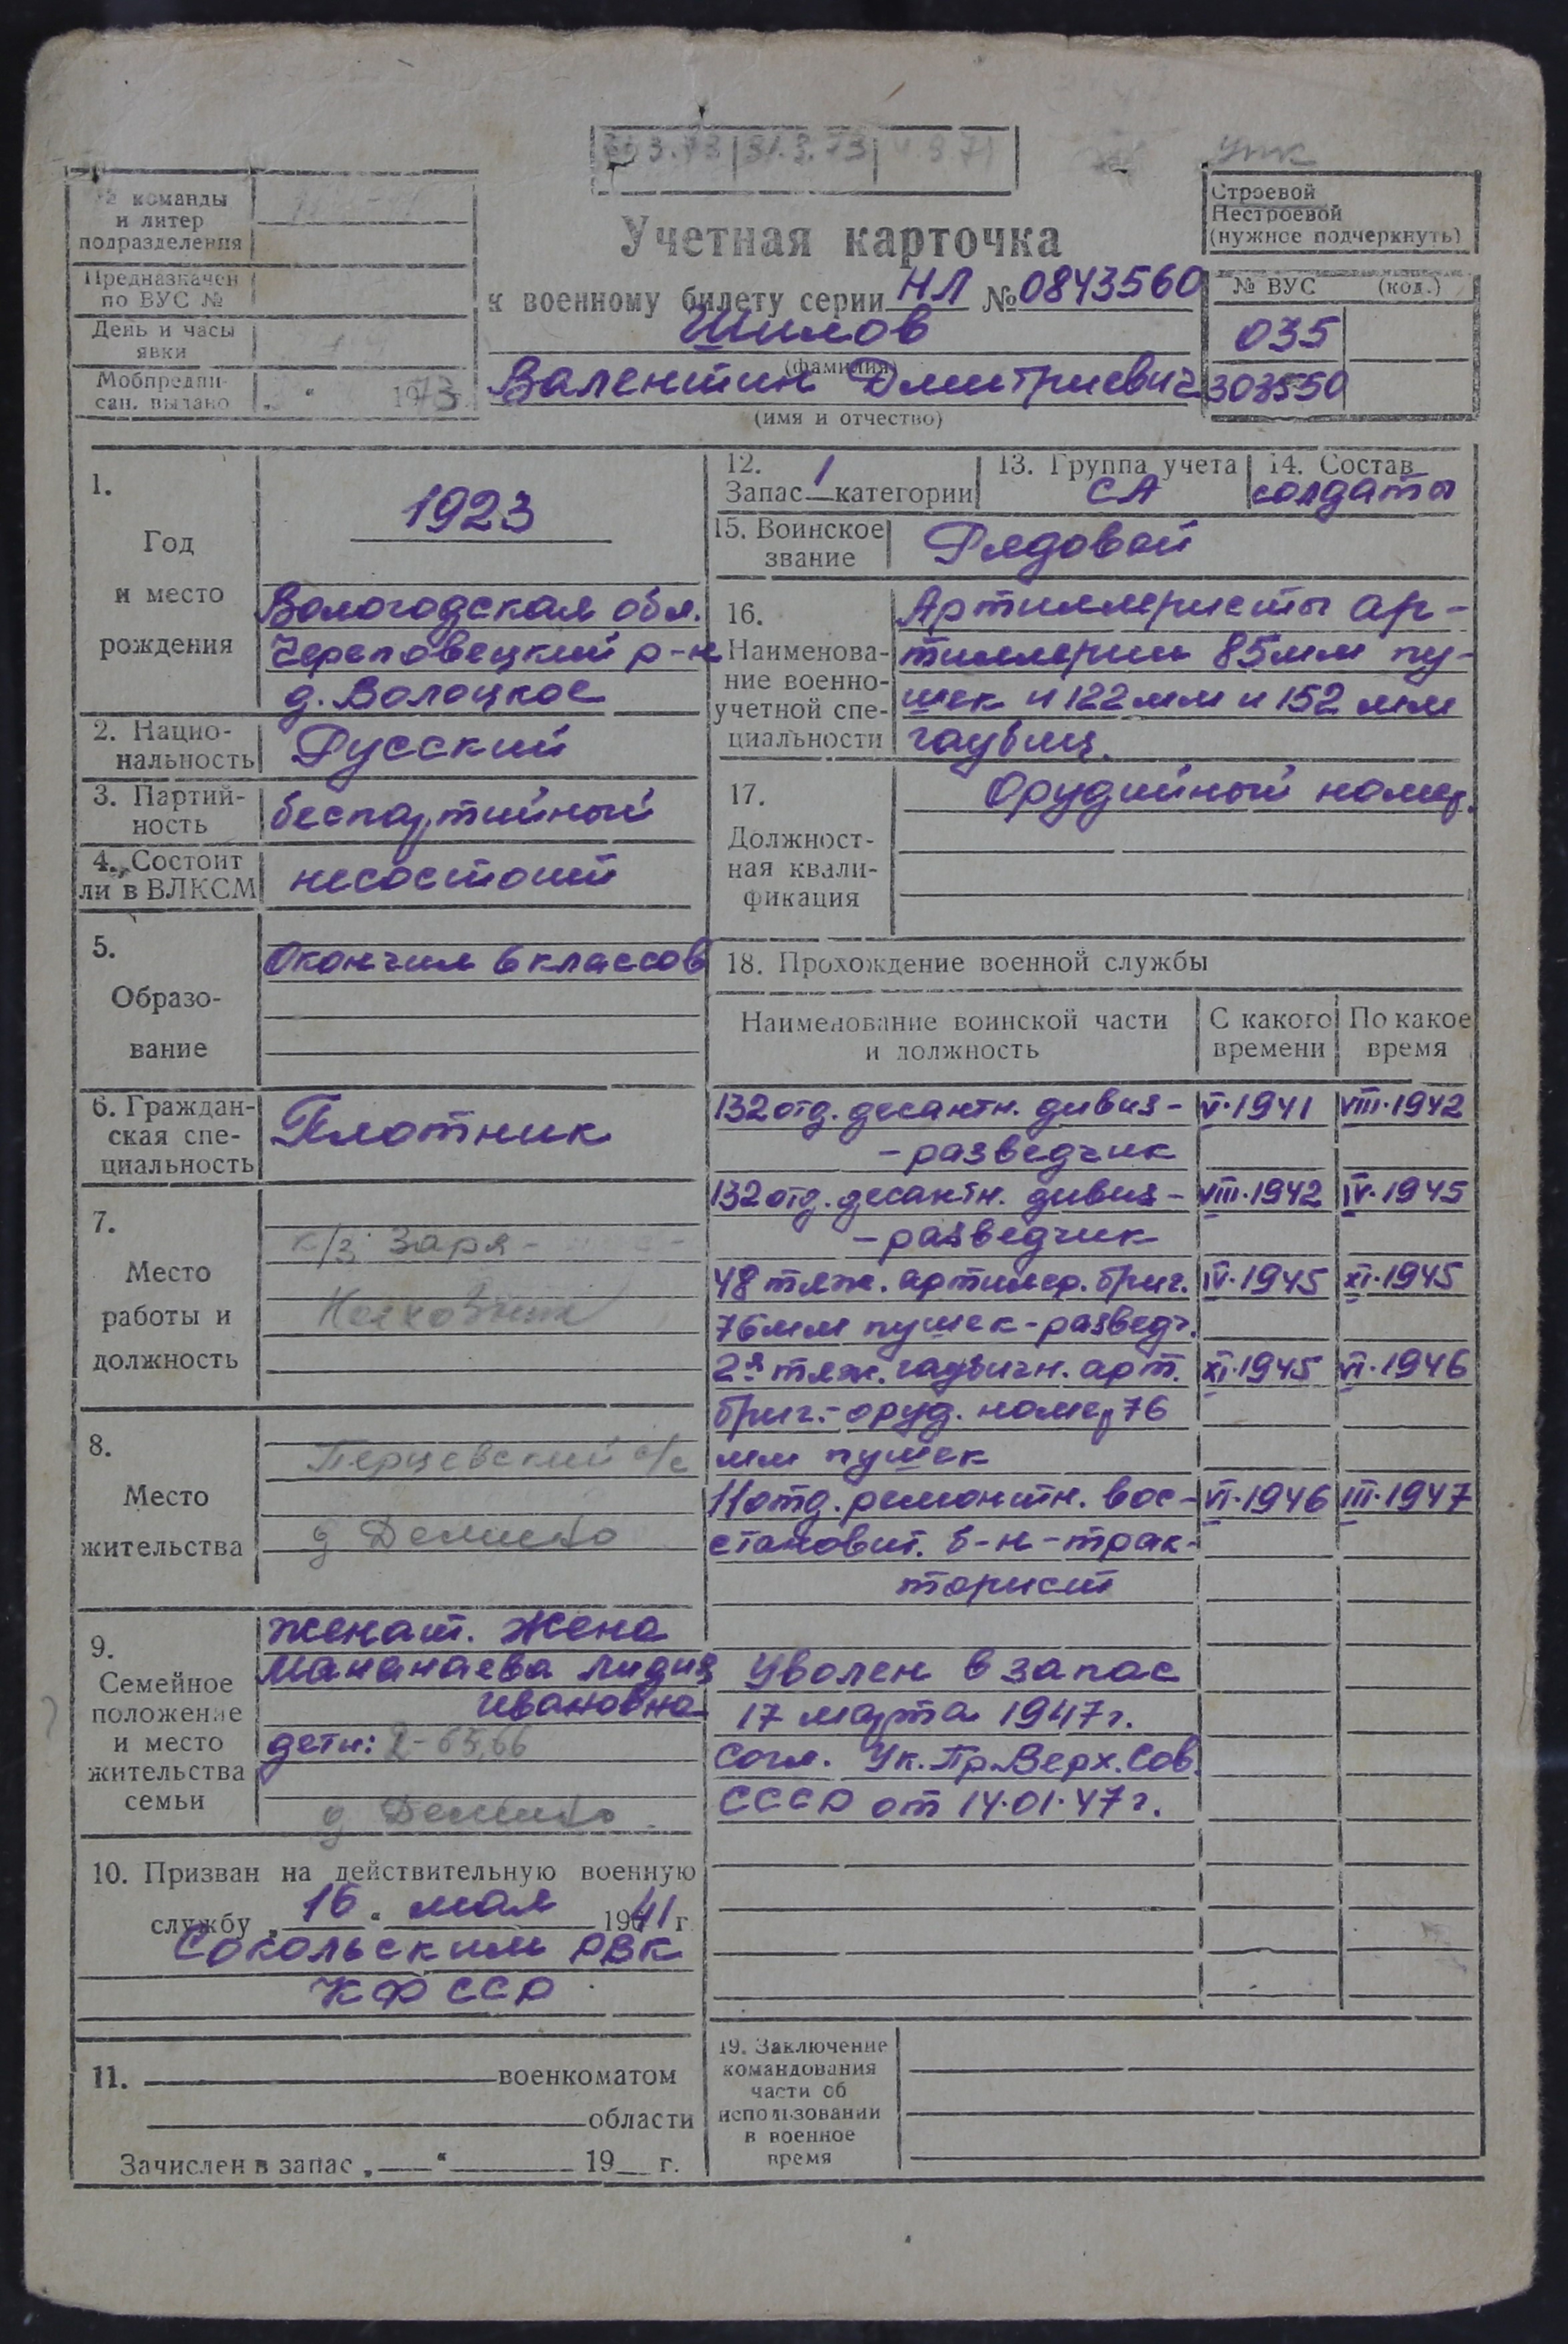 31.3.73
УПК
№ команды
и литер
подразделения
Предназначен
по ВУС №
День и часы
явки
Мобпредпи-
сан. выдано „ “ 1973
Учетная карточка
к военному билету серии НЛ № 0843560
Шилов
(фамилия)
Валентин Дмитриевич
(имя и отчество)
Строевой
Нестроевой
(нужное подчеркнуть)
№ ВУС (код.)
035
303550
1.
Год
и место
рождения
1923
Вологодская обл.
Череповецкий р-н
д. Волоцкое
2. Нацио-
нальность
Русский
3. Партий-
ность
беспартийный
4. Состоит
ли в ВЛКСМ
несостоит
5.
Образо-
вание
Окончил 6 классов
6. Граждан-
ская спе-
циальность
Плотник
7.
Место
работы и
должность
к/з Заря
8.
Место
жительства
Перцевский с/с
д
9.
Семейное
положение
и место
жительства
семьи
женат. Жена
Мананаева Лидия
Ивановна
дети: 2-65,66
д
10. Призван на действительную военную
службу „16“ мая 1941 г.
Сокольским РВК
КФССР
11. военкоматом
области
Зачислен в запас „ “ 19 г.
12. 1
Запас категории
13. Группа учета
СА
14. Состав
солдаты
15. Воинское
звание
Рядовой
16.
Наименова-
ние военно-
учетной спе-
циальности
Артиллеристы ар-
тиллерии 85мм пу-
шек и 122мм и 152 мм
гаубиц.
17.
Должност-
ная квали-
фикация
Орудийный номер.
18. Прохождение военной службы
Наименование воинской части
и должность
С какого
времени
По какое
время
132 отд. десантн. дивиз- V.1941 VIII.1942
-разведчик
132 отд. десантн. дивиз- VIII.1942 IV.1945
-разведчик
48 тяж. артилер. бриг. IV.1945 XI.1945
76мм пушек-разведч.
2я тяж. гаубичн. арт. XI.1945 VI.1946
бриг.-оруд. номер 76
мм пушек
11 отд. ремонтн. вос- VI.1946 III.1947
становит. б-н-трак-
торист
Уволен в запас
17 марта 1947г.
Согл. Ук. Пр. Верх. Сов.
СССР от 14.01.47г.
19. Заключение
командования
части об
использовании
в военное
время